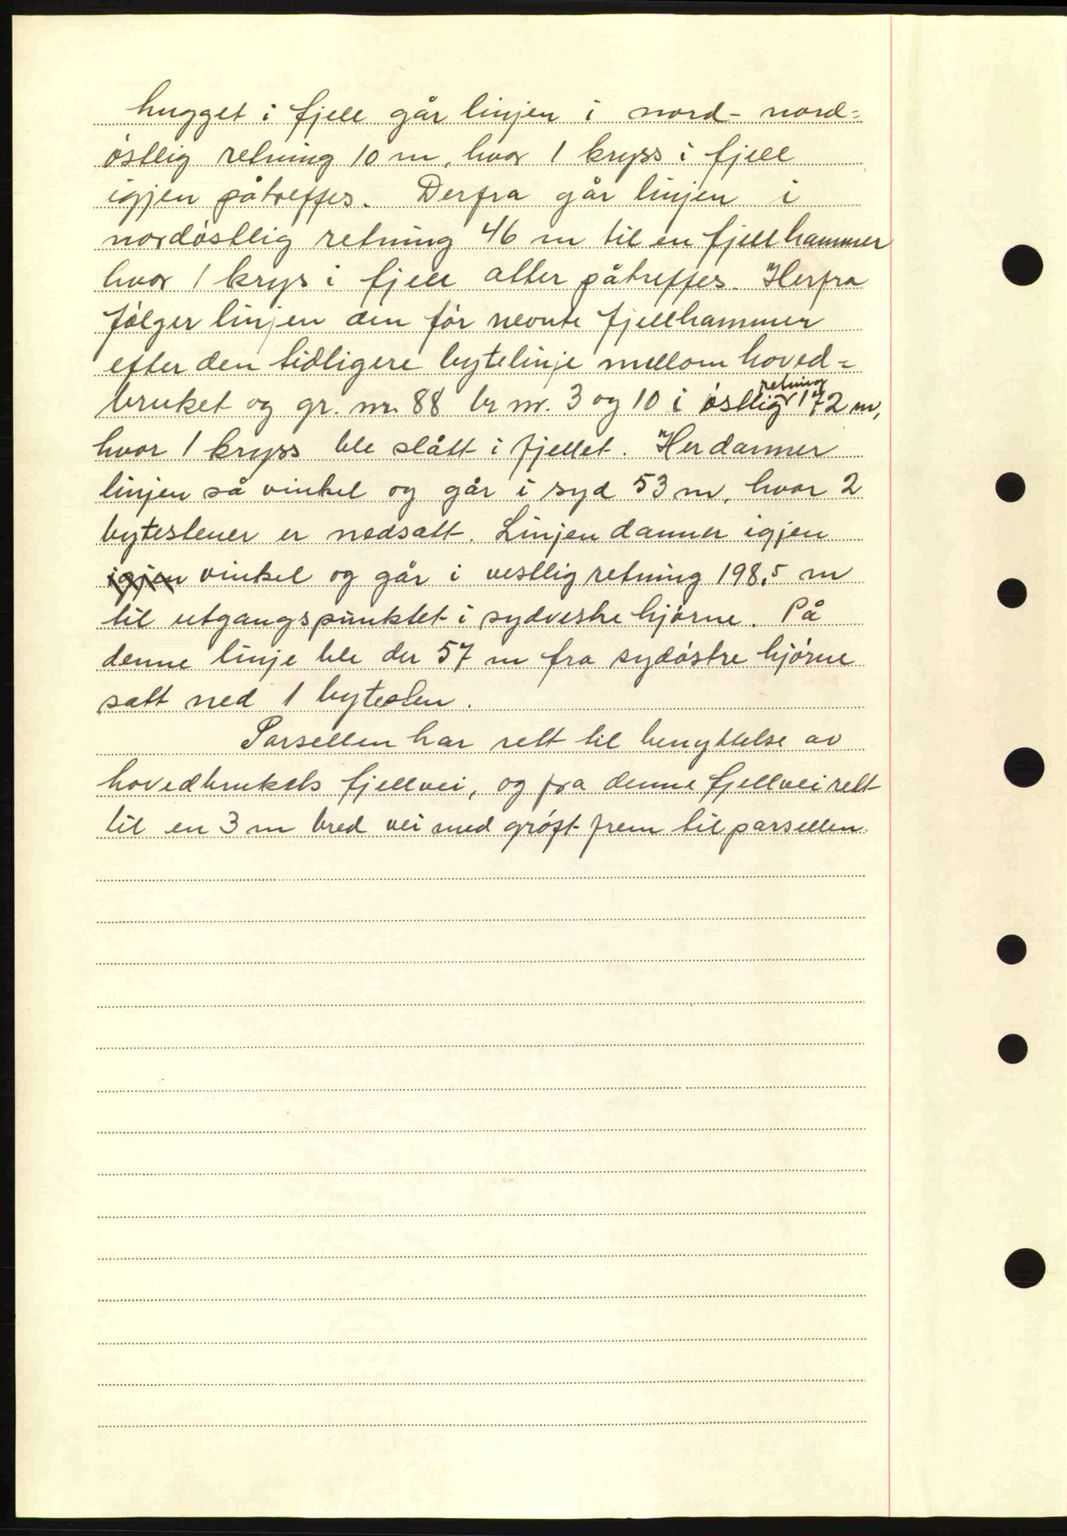 hugget i fjell går linjen i nord- nord-
østlig retning 10 m, hvor 1 kryss i fjell
igjen påtreffes. Derfra går linjen i
nordøstlig retning 46 m til en fjellhammer
hvor 1 krys i fjell atter påtreffes. Herfra
følger linjen den før nevnte fjellhammer
efter den tidligere bytelinje mellom hoved-
bruket og gr. nr. 88 br nr. 3 og 10 i østlig retning 172 m,
hvor 1 kryss ble slått i fjellet. Her danner
linjen så vinkel og går i syd 53 m, hvor 2
bytestener er nedsatt. Linjen danner igjen
igjen vinkel og går i vestlig retning 198,5 m
til utgangspunktet i sydvestre hjørne. På
denne linje ble der 57 m fra sydøstre hjørne
satt ned 1 bytesten.
Parsellen har rett til benyttelse av
hovedbrukets fjellvei, og fra denne fjellvei rett
til en 3 m bred vei med grøft frem til parsellen.